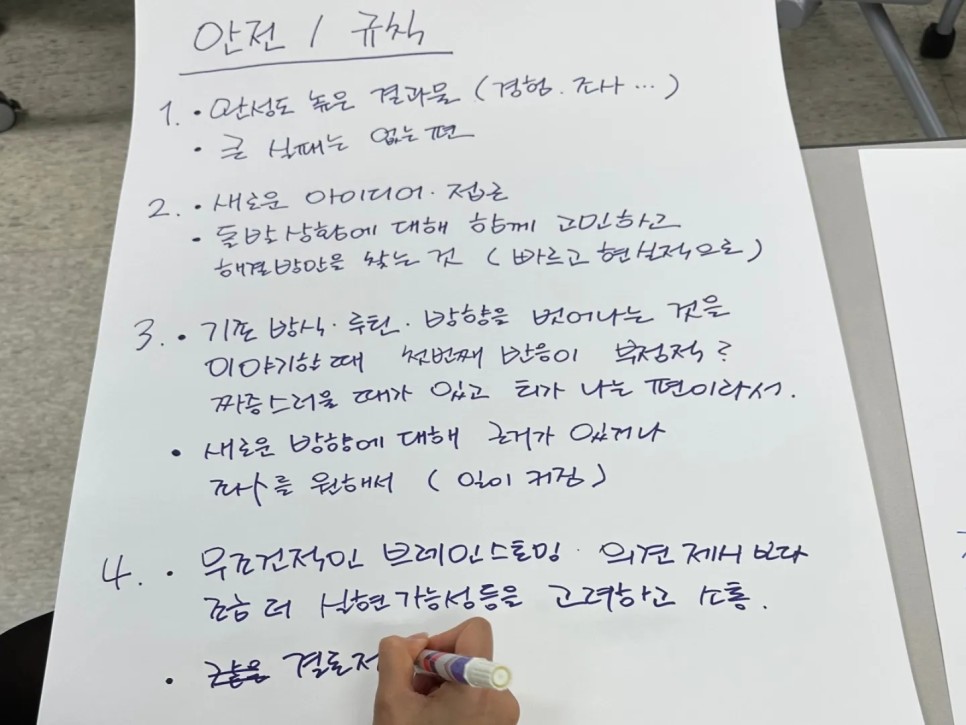 안전 / 규칙
1. · 완성도 높은 결과물 (경험. 조사 ...)
· 큰 실패는 없는 편
2. · 새로운 아이디어 · 접근
· 돌발상황에 대해 함께 고민하고
해결방안을 찾는 것 (빠르고 현실적으로)
3. · 기존 방식 · 루틴 · 방향을 벗어나는 것을
이야기할 때 첫번째 반응이 부정적?
짜증스러울 때가 있고 티가 나는 편이라서.
· 새로운 방향에 대해 근거가 있거나
조사를 원해서 (일이 커짐)
4. · 무조건적인 브레인스토밍 · 의견 제시 보다
조금 더 실현가능성등을 고려하고 소통.
· 결론저